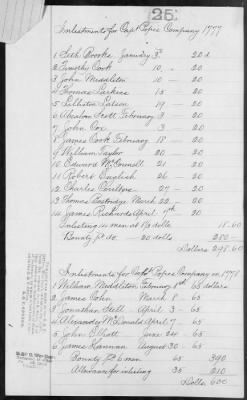 25
Inlistment for Capt Popes Company 1777
1 Seth Brooks January 3d — 20 d
2 Timothy Cook 10 — 20
3 John Middleton 10 — 20
4 Thomas Perkins 15 — 20
5 19 — 20
6 Absalom Scott February 3 — 20
7 John Cox 3 — 20
8 James Cook February 18 — 20
9 William Taylor 20 — 20
10 Edward McConnell 21 — 20
11 Robert English 26 — 20
12 Charles 27 — 20
13 Thomas March 22 — 20
14 James Richards April 7th — 20
Inlisting 14 men at dollar 18.60
Bounty pd do — 20 dollars 280
Dollars 298.60
Inlistments for Capt Popes Company in 1778
1 William Middleton February 1st 65 dollars
2 James March 8 — 65
3 Jonathan Stell April 3 — 65
4 Alexander McDonald April 7 — 65
5 John Elliott June 24 — 65
6 James Hannan August 30 — 65
Bounty for 6 men 65 390
Allowance for inlisting 35 210
Dolls 600